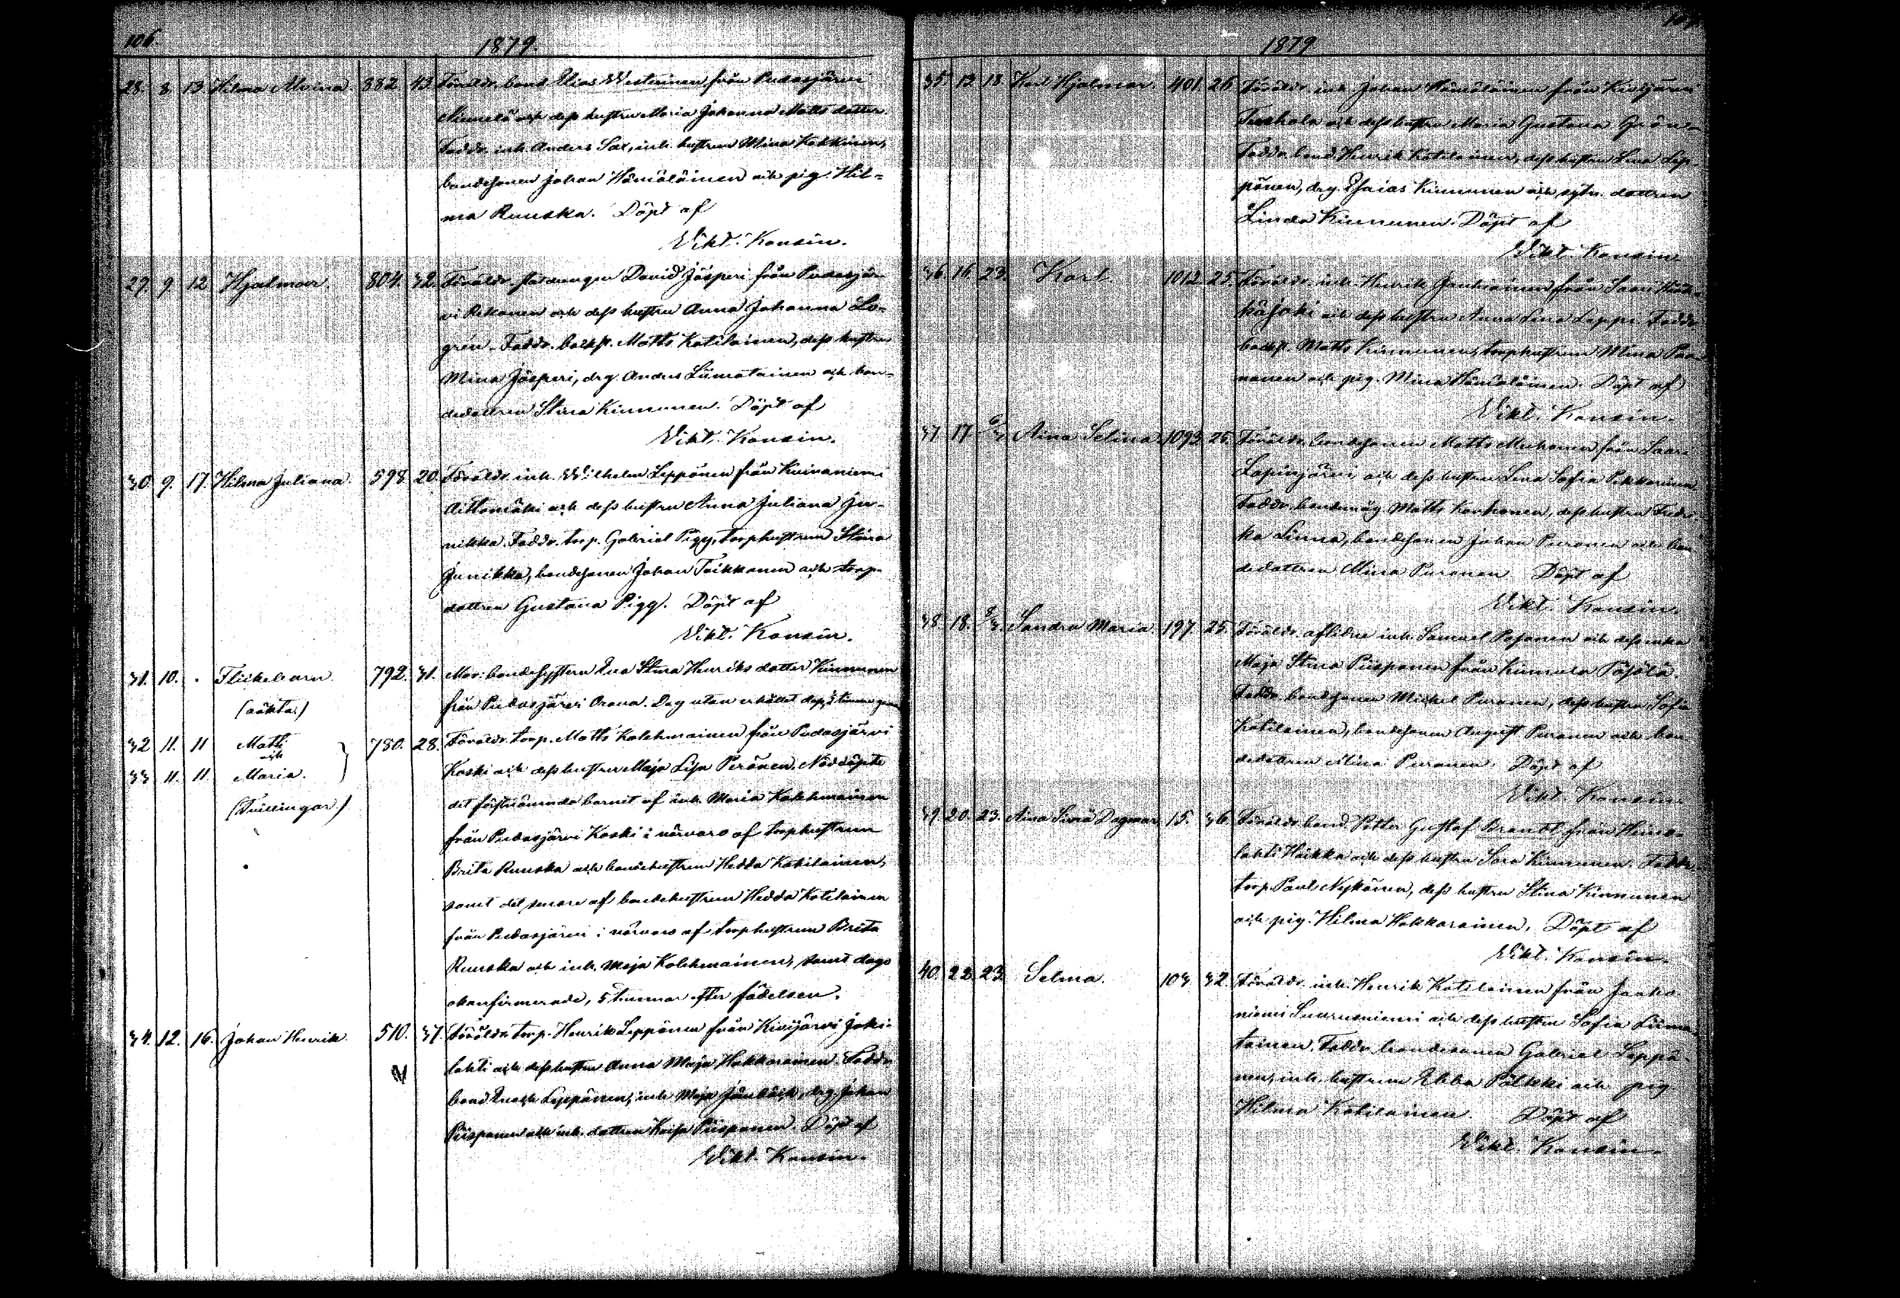 106.
1879.
28. 8 13 Hilma Alvina. 882 43. Föräldr. bond. Elias Westerinen från Pudasjärvi
Niemelä och dess hustru Maria Johanna Matts dotter.
Faddr. inh. Anders Sax, inh. hustrun Mina Kokkinen,
bondesonen Johan Hämäläinen och pig. Hil-
ma Ruuska. Döpt af
Vikt. Konsin.
29. 9 12 Hjalmar. 804. 32. Föräldr. David Jäsperi från Pudasjär-
vi Rekonen och dess hustru Anna Johanna Lö-
grén. Faddr. backst. Matts Katilainen, dess hustru
Mina Jäsperi, drg. Anders Liimatainen och bon-
dedottren Stina Kinnunen. Döpt af
Vikt. Konsin.
30. 9. 17. Hilma Juliana. 598 20. Föräldr. inh. Wilhelm Leppänen från Kuivaniemi
Aittomäki och dess hustru Anna Juliana Ju-
nikka. Faddr. torp. Gabriel Pigg, torphustrun Stina
Junikka, bondesonen Johan Toikkanen och torp-
dottren Gustava Pigg. Döpt af
Vikt. Konsin.
31. 10. Flickebarn. 792. 31. Mor: Eva Stina Henriks dotter Kinnunen
(oäkta) från Pudasjärvi Orava. Dog utan erhållet dop
32 11. 11 Matti 780. 28. Föräldr. torp. Matts Kolehmainen från Pudasjärvi
och
33 11. 11. Maria. Koski och dess hustru Maja Lisa Peränen. Nöddöpte
(Tvillingar) det förstnämnda barnet af inh. Maria Kolehmainen
från Pudasjärvi Koski i närvaro af torphustrun
Brita Ruuska och bondehustrun Hedda Katilainen,
samt det senare af bondehustrun Hedda Katilainen
från Pudasjärvi i närvaro af torphustrun Brita
Ruuska och inh. Maja Kolehmainen, samt dogo
okonfirmerade, 5 timmar efter födelsen.
34. 12. 16. Johan Henrik 510. 37. Föräldr. torp. Henrik Leppänen från Kivijärvi Joki-
lahti och dess hustru Anna Maja Hakkarainen. Faddr.
bond. Enok Leppänen, inh. Maja, drg. Johan
Piispanen och inh. dottren Kaisa Piispanen. Döpt af
Vikt. Konsin.
1879
35. 13 18 Karl Hjalmar. 401. 26 Föräldr. inh. Johan Hämäläinen från Kivijärvi
och dess hustru Maria Gustava Grön.
Faddr. bond. Henrik Katilainen, dess hustru Lina Lep-
pänen, drg. Esaias Kinnunen och dottren
Linda Kinnunen. Döpt af
Vikt. Konsin.
36. 16. 23. Karl. 1012 25. Föräldr. inh. Henrik Jantunen från Saari
och dess hustru Anna Lena Lappi. Faddr.
backst. Matts Kinnunen, torphustrun Mina
och pig. Mina Hämäläinen. Döpt af
Vikt. Konsin.
37 17 6/3 Aina Selina 1093. 26. Föräldr. bondesonen Matts Muhonen från Saari
Lapinjärvi och dess hustru Lena Sofia Pekkarinen
Faddr. bondemåg. Matts Korhonen, dess hustru
Linna, bondesonen Johan Puronen och bon-
dedottren Mina Puronen. Döpt af
Vikt. Konsin.
38. 18. 8/3. Sandra Maria 197 25. Föräldr. aflidne inh. Samuel Pasanen och dess enka
Maja Stina Piispanen från Kinnula Pöhölä.
Faddr. bondesonen Mickel Puronen, dess hustru Sofia
Katilainen, bondesonen August Puronen och bon-
dedottren Mina Puronen. Döpt af
Vikt. Konsin.
39. 20. 23. Aina Dagmar 15. 36. Föräldr. bond. Petter Gustaf Brandt från Heina-
lahti Hoikka och dess hustru Sara Kinnunen. Faddr.
torp. Paul Nykänen, dess hustru Stina Kinnunen
och pig. Hilma Hakkarainen. Döpt af
Vikt. Konsin.
40. 22. 23 Selma. 103. 32. Föräldr. inh. Henrik Katilainen från Jaako-
niemi och dess hustru Sofia Liima-
tainen. Faddr. bondesonen Gabriel Leppä-
nen, inh. hustrun Ebba och pig
Hilma Katilainen. Döpt af
Vikt. Konsin.